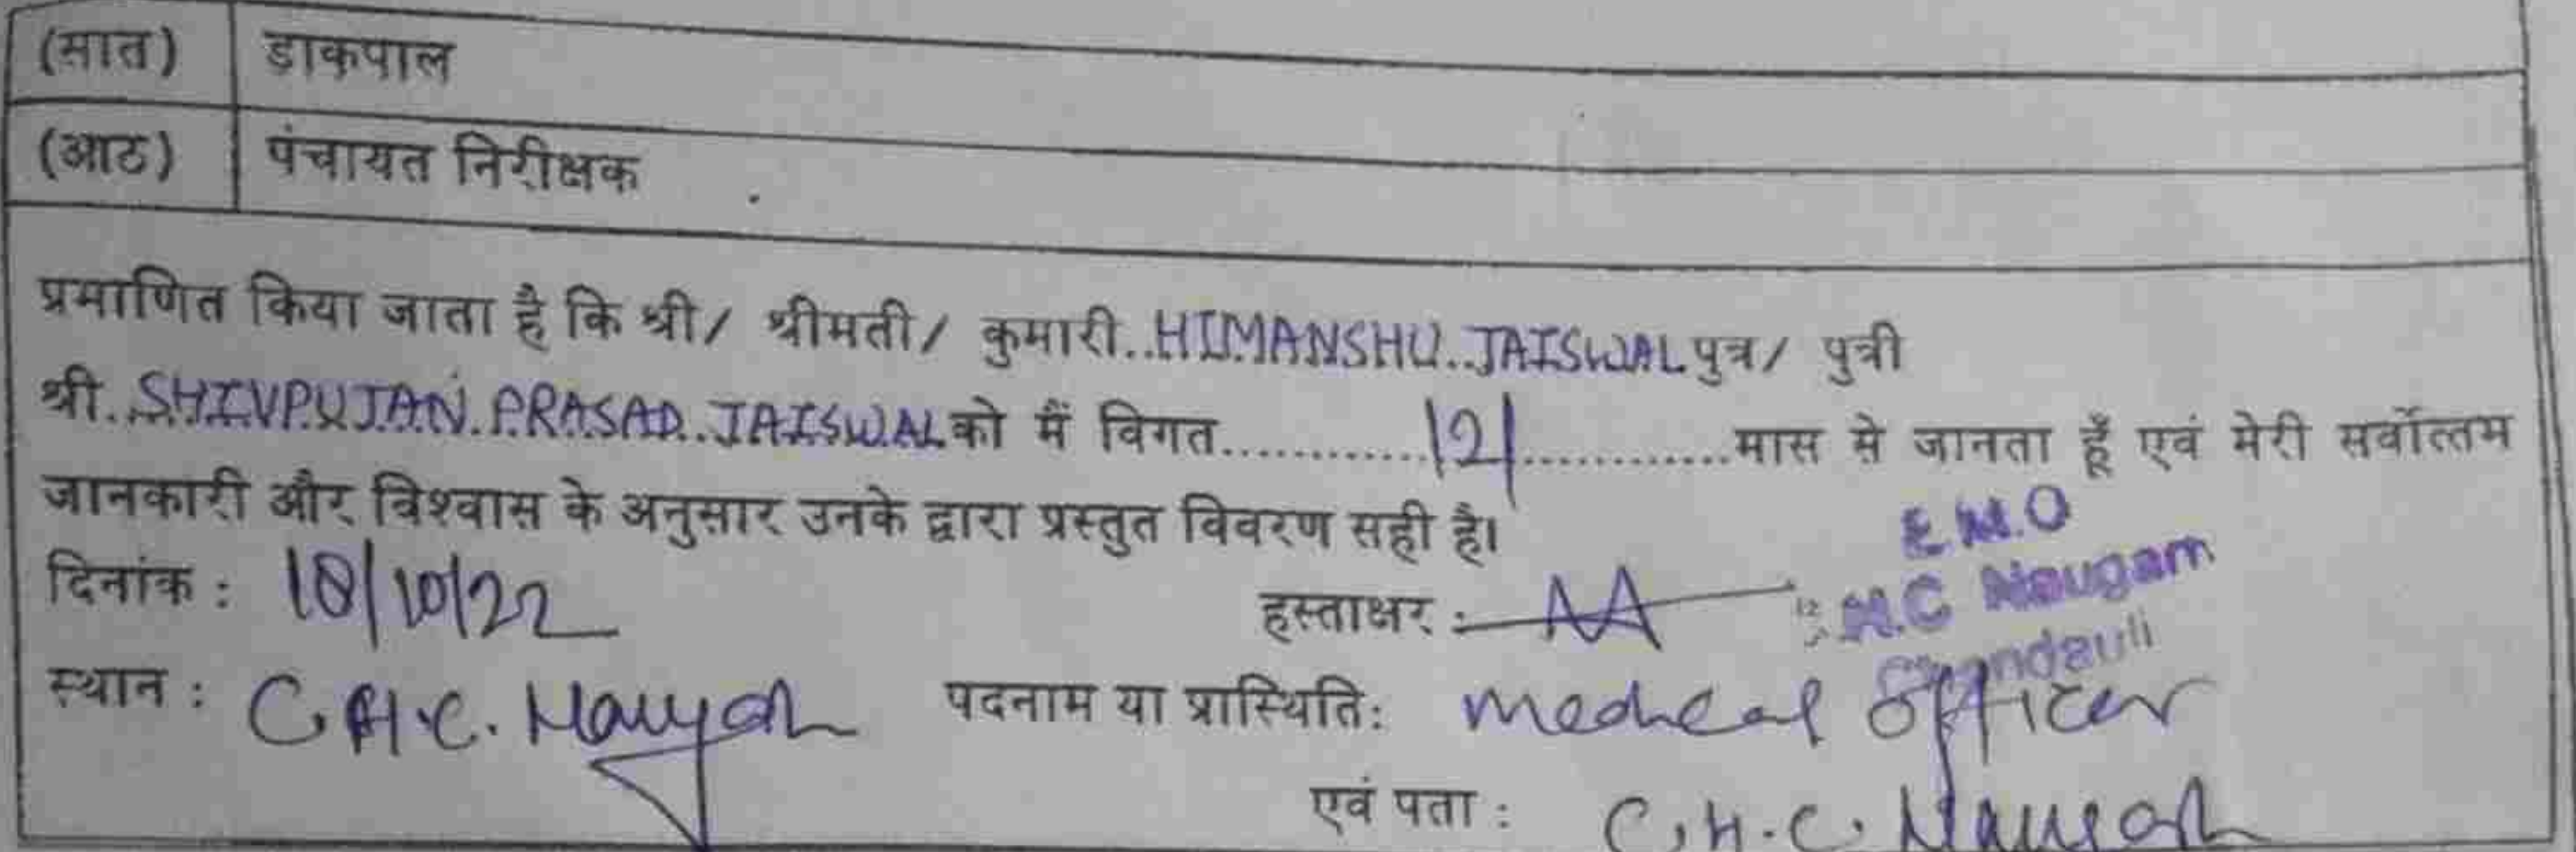 (सात) डाकपाल
(आठ) पंचायत निरीक्षक
प्रमाणित किया जाता है कि श्री/ श्रीमती/ कुमारी..HIMANSHU..JAISWAL पुत्र/ पुत्री
श्री..SHIVPUJAN.PRASAD..JAISWAL को मैं विगत............12............मास से जानता हूँ एवं मेरी सर्वोत्तम
जानकारी और विश्वास के अनुसार उनके द्वारा प्रस्तुत विवरण सही है।
E.M.O
दिनांक : 18/10/22 हस्ताक्षर : H.C Naugarh
Chandauli
स्थान : C.H.C. Naugarh पदनाम या प्रास्थिति: medical officer
एवं पता : C.H.C. Naugarh